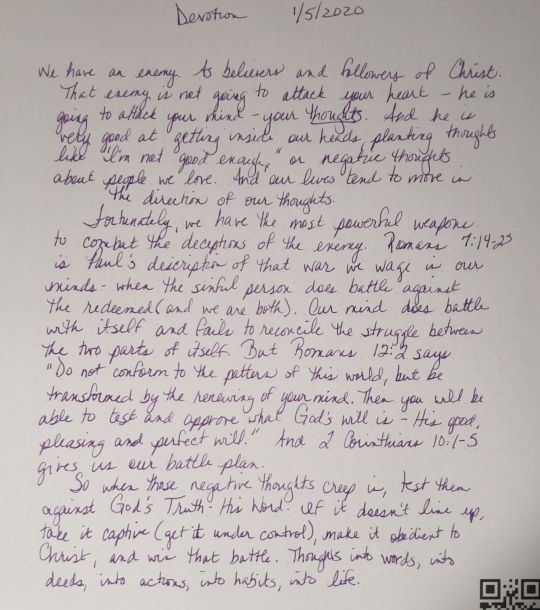 Devotion 1/5/2020
We have an enemy. As believers and followers of Christ.
That enemy is not going to attack your heart - he is
going to attack your mind - your thoughts. And he is
very good at getting inside our heads, planting thoughts
like "I'm not good enough," or negative thoughts
about people we love. And our lives tend to move in
the direction of our thoughts.
Fortunately, we have the most powerful weapons
to combat the deceptions of the enemy. Romans 7:14-25
is Paul's description of that war we wage in our
minds - when the sinful person does battle against
the redeemed (and we are both). Our mind does battle
with itself and fails to reconcile the struggle between
the two parts of itself. But Romans 12:2 says
"Do not conform to the pattern of this world, but be
transformed by the renewing of your mind. Then you will be
able to test and approve what God's will is - His good,
pleasing and perfect will." And 2 Corinthians 10:1-5
gives us our battle plan.
So when those negative thoughts creep in, test them
against God's Truth - His Word. If it doesn't line up,
take it captive (get it under control), make it obedient to
Christ, and win that battle. Thoughts into words, into
deeds, into actions, into habits, into life.